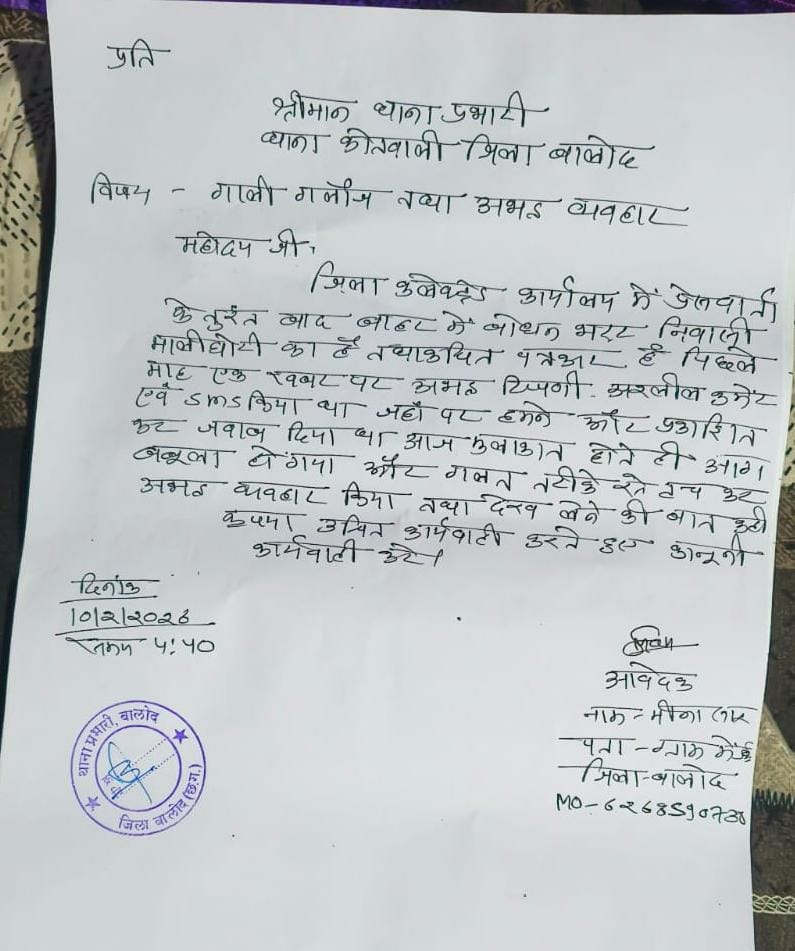 प्रति
श्रीमान थाना प्रभारी
थाना कोतवाली जिला बालोद
विषय - गाली गलौज तथा अभद्र व्यवहार
महोदय जी,
जिला कलेक्ट्रेड कार्यालय में प्रेसवार्ता
के तुरंत बाद बाहर में बोधन भरट निवासी
मालीघोरी का है तथाकथित पत्रकार है पिछले
माह एक खबर पर अभद्र टिप्पणी. अश्लील कमेंट
एवं SMS किया था जहाँ पर हमने और प्रकाशित
कर जवाब दिया था आज मुलाकात होते ही आग
बबूला हो गया और गलत तरीके से टच कर
अभद्र व्यवहार किया तथा देख लेने की बात कही
कृपया उचित कार्यवाही करते हुए कानूनी
कार्यवाही करें।
दिनांक
10/2/2026
समय 4:40
आवेदक
नाम-मीना
पता-ग्राम
जिला-बालोद
MO-6268590730
थाना प्रभारी, बालोद
जिला बालोद (छ.ग.)